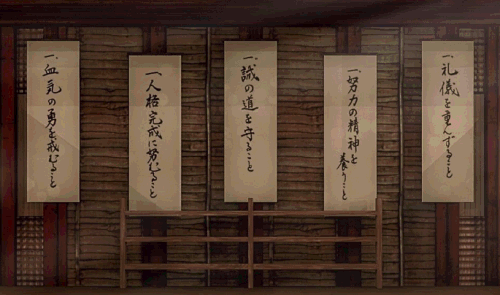 一、礼儀を重んずること
一、努力の精神を
養うこと
一、誠の道を守ること
一、人格完成に努むること
一、血気の勇を戒むること